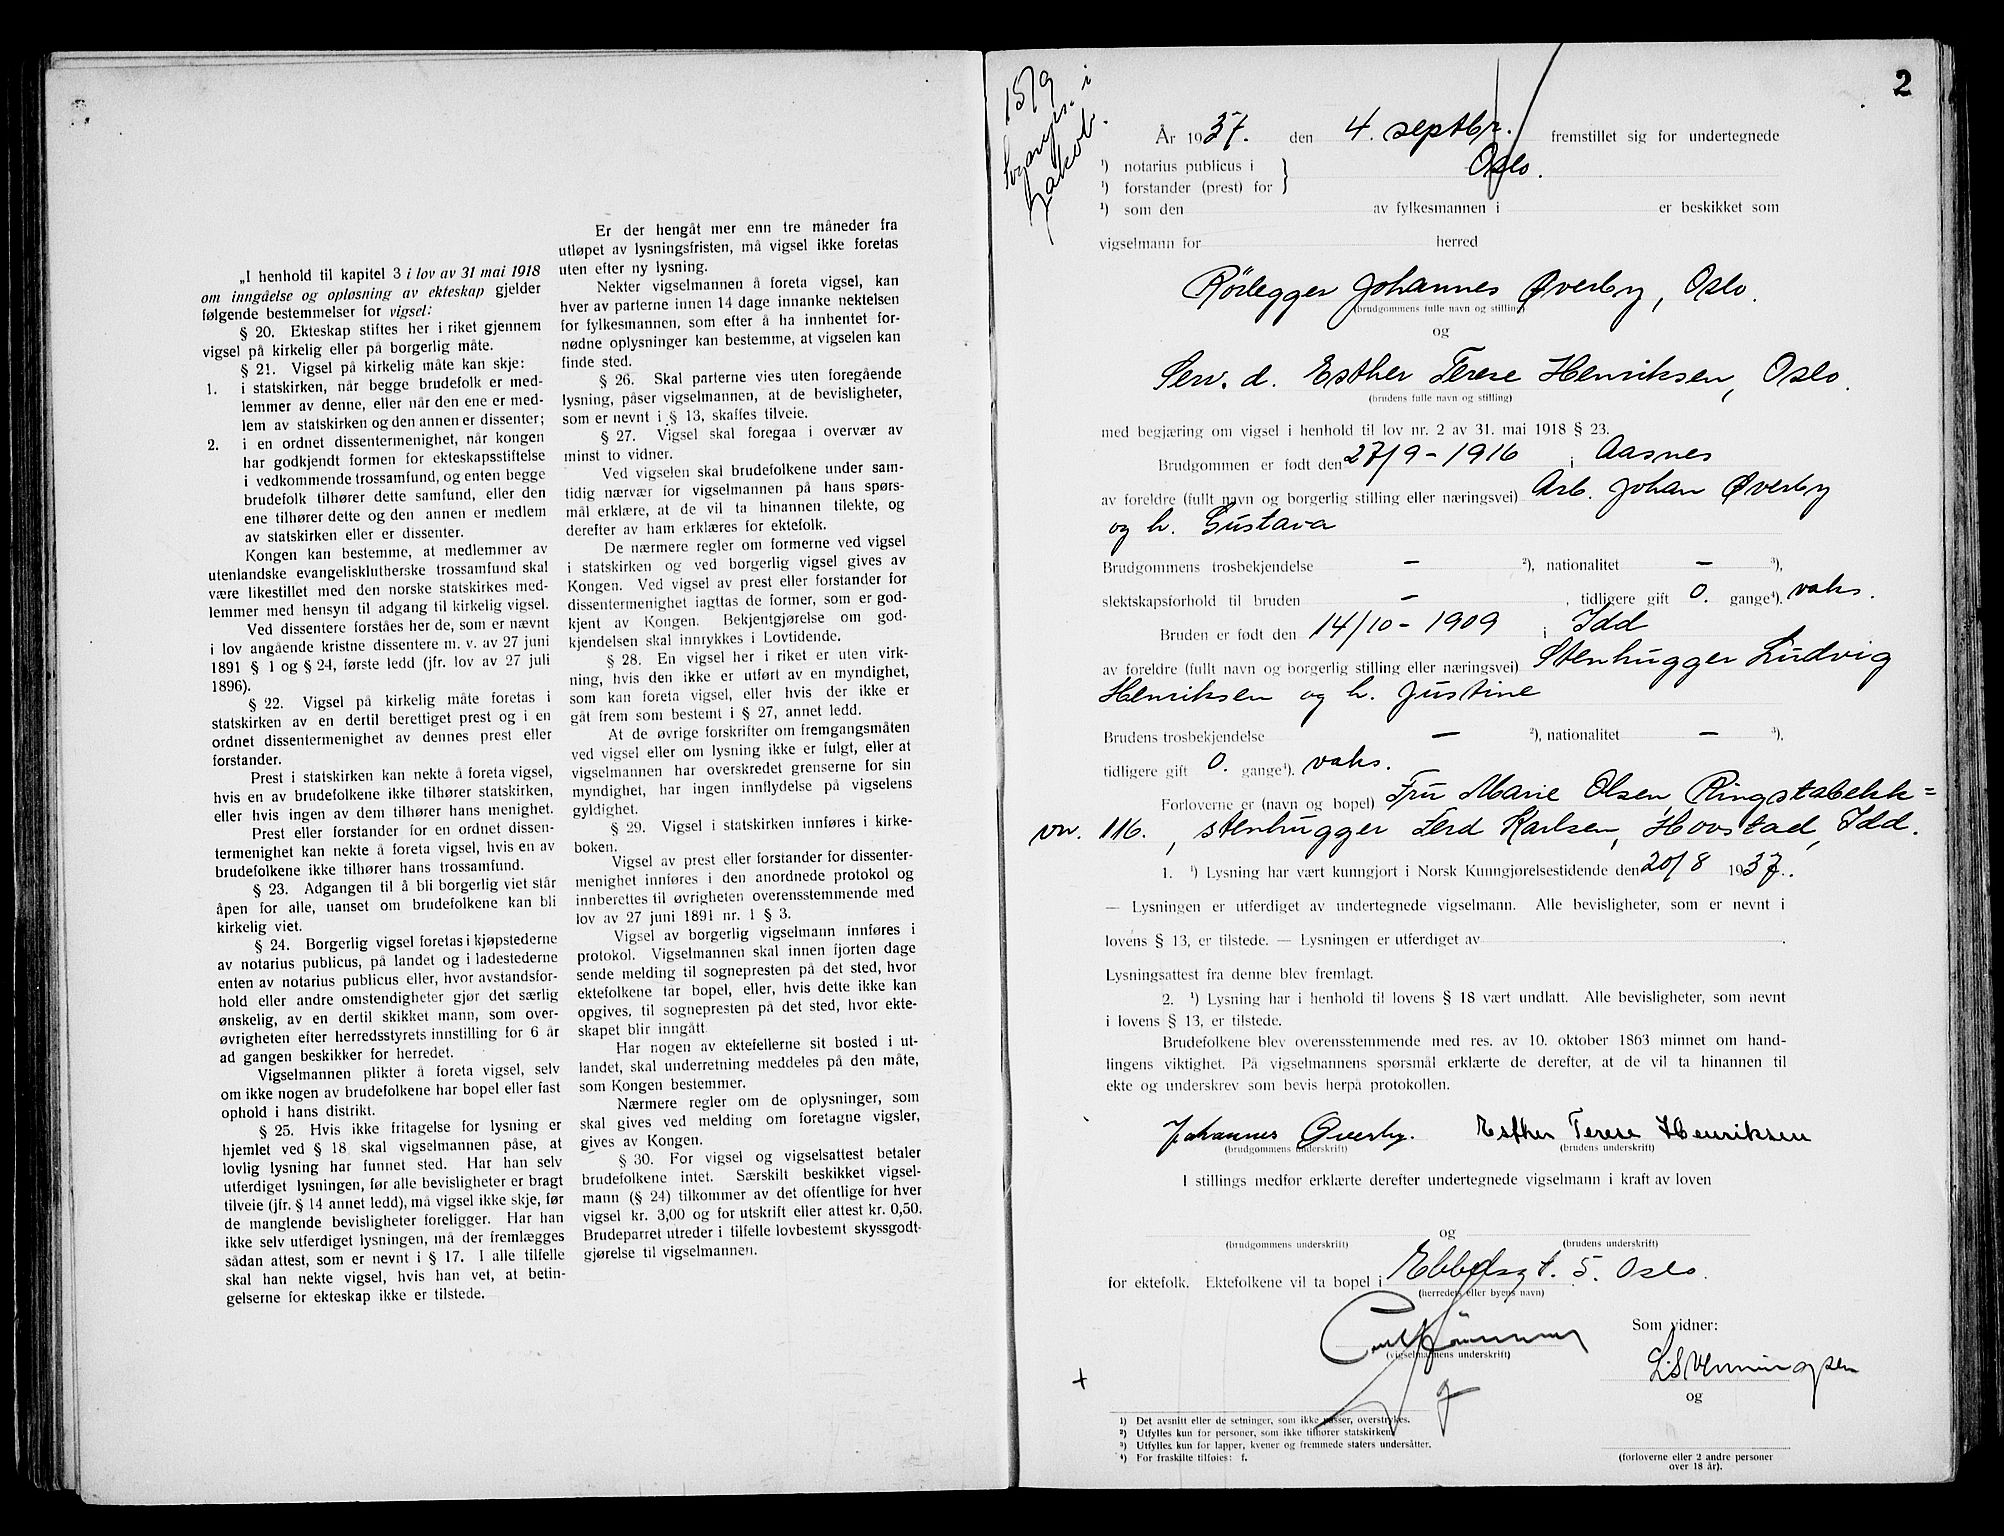 „I henhold til kapitel 3 i lov av 31 mai 1918
om inngåelse og opløsning av ekteskap gjelder
følgende bestemmelser for vigsel:
§ 20. Ekteskap stiftes her i riket gjennem
vigsel på kirkelig eller på borgerlig måte.
§ 21. Vigsel på kirkelig måte kan skje:
1. i statskirken, når begge brudefolk er med-
lemmer av denne, eller når den ene er med-
lem av statskirken og den annen er dissenter;
2. i en ordnet dissentermenighet, når kongen
har godkjendt formen for ekteskapsstiftelse
i vedkommende trossamfund, og enten begge
brudefolk tilhører dette samfund, eller den
ene tilhører dette og den annen er medlem
av statskirken eller er dissenter.
Kongen kan bestemme, at medlemmer av
utenlandske evangeliskluthers­ke trossamfund skal
være likestillet med den norske statskirkes med-
lemmer med hensyn til adgang til kirkelig vigsel.
Ved dissentere forståes her de, som er nævnt
i lov angående kristne dissentere m. v. av 27 juni
1891 § 1 og § 24, første ledd (jfr. lov av 27 juli
1896).
§ 22. Vigsel på kirkelig måte foretas i
statskirken av en dertil berettiget prest og i en
ordnet dissentermenighet av dennes prest eller
forstander.
Prest i statskirken kan nekte å foreta vigsel,
hvis en av brudefolkene ikke tilhører statskirken,
eller hvis ingen av dem tilhører hans menighet.
Prest eller forstander for en ordnet dissen-
termenighet kan nekte å foreta vigsel, hvis en av
brudefolkene ikke tilhører hans trossamfund.
§ 23. Adgangen til å bli borgerlig viet står
åpen for alle, uanset om brudefolkene kan bli
kirkelig viet.
§ 24. Borgerlig vigsel foretas i kjøpstederne
av notarius publicus, på landet og i ladestederne
enten av notarius publicus eller, hvor avstandsfor-
hold eller andre omstendigheter gjør det særlig
ønskelig, av en dertil skikket mann, som over-
øvrigheten efter herredsstyrets innstilling for 6 år
ad gangen beskikker for herredet.
Vigselmannen plikter å foreta vigsel, selv
om ikke nogen av brudefolkene har bopel eller fast
ophold i hans distrikt.
§ 25. Hvis ikke fritagelse for lysning er
hjemlet ved § 18 skal vigselmannen påse, at
lovlig lysning har funnet sted. Har han selv
utferdiget lysningen, før alle bevisligheter er bragt
tilveie (jfr. § 14 annet ledd), må vigsel ikke skje, før
de manglende bevisligheter foreligger. Har han
ikke selv utferdiget lysningen, må der fremlægges
sådan attest, som er nevnt i § 17. I alle tilfelle
skal han nekte vigsel, hvis han vet, at betin-
gelserne for ekteskap ikke er tilstede.
Er der hengåt mer enn tre måneder fra
utløpet av lysningsfristen, må vigsel ikke foretas
uten efter ny lysning.
Nekter vigselmannen å foreta vigsel, kan
hver av parterne innen 14 dage innanke nektelsen
for fylkesmannen, som efter å ha innhentet for-
nødne oplysninger kan bestemme, at vigselen kan
finde sted.
§ 26. Skal parterne vies uten foregående
lysning, påser vigselmannen, at de bevisligheter,
som er nevnt i § 13, skaffes tilveie.
§ 27. Vigsel skal foregaa i overvær av
minst to vidner.
Ved vigselen skal brudefolkene under sam-
tidig nærvær for vigselmannen på hans spørs-
mål erklære, at de vil ta hinannen tilekte, og
derefter av ham erklæres for ektefolk.
De nærmere regler om formerne ved vigsel
i statskirken og ved borgerlig vigsel gives av
Kongen. Ved vigsel av prest eller forstander for
dissentermenighet iagttas de former, som er god-
kjent av Kongen. Bekjentgjørelse om god-
kjendelsen skal innrykkes i Lovtidende.
§ 28. En vigsel her i riket er uten virk-
ning, hvis den ikke er utført av en myndighet,
som kan foreta vigsel, eller hvis der ikke er
gåt frem som bestemt i § 27, annet ledd.
At de øvrige forskrifter om fremgangsmåten
ved vigsel eller om lysning ikke er fulgt, eller at
vigselmannen har overskredet grenserne for sin
myndighet, har ingen innflydelse på vigselens
gyldighet.
§ 29. Vigsel i statskirken innføres i kirke-
boken.
Vigsel av prest eller forstander for dissenter-
menighet innføres i den anordnede protokol og
innberettes til øvrigheten overensstemmende med
lov av 27 juni 1891 nr. 1 § 3.
Vigsel av borgerlig vigselmann innføres i
protokol. Vigselmannen skal innen fjorten dage
sende melding til sognepresten på det sted, hvor
ektefolkene tar bopel, eller, hvis dette ikke kan
opgives, til sognepresten på det sted, hvor ekte-
skapet blir inngått.
Har nogen av ektefellerne sit bosted i ut-
landet, skal underretning meddeles på den måte,
som Kongen bestemmer.
Nærmere regler om de oplysninger, som
skal gives ved melding om foretagne vigsler,
gives av Kongen.
§ 30. For vigsel og vigselsattest betaler
brudefolkene intet. Særskilt beskikket vigsel-
mann (§ 24) tilkommer av det offentlige for hver
vigsel kr. 3,00 og for utskrift eller attest kr. 0,50.
Brudeparret utreder i tilfelle lovbestemt skyssgodt-
gjørelse til vigselmannen.
2
15/9
Sogneps. i
Jakob.
År 1937. den 4. septbr. fremstillet sig for undertegnede
¹) notarius publicus i
¹) forstander (prest) for } Oslo.
¹) som den av fylkesmannen i er beskikket som
vigselmann for herred
Rörlegger Johannes Øverby, Oslo.
(brudgommens fulle navn og stilling)
og
Serv. d. Esther Terese Henriksen, Oslo.
(brudens fulle navn og stilling)
med begjæring om vigsel i henhold til lov nr. 2 av 31. mai 1918 § 23.
Brudgommen er født den 27/9 - 1916 i Aasnes
av foreldre (fullt navn og borgerlig stilling eller næringsvei) Arb. Johan Øverby
og h. Gustava
Brudgommens trosbekjendelse - ²), nationalitet - ³),
slektskapsforhold til bruden - , tidligere gift 0. gange⁴). vaks.
Bruden er født den 14/10 - 1909 i Idd
av foreldre (fullt navn og borgerlig stilling eller næringsvei) Stenhugger Ludvig
Henriksen og h. Justine
Brudens trosbekjendelse - ²), nationalitet - ³),
tidligere gift 0. gange⁴). vaks.
Forloverne er (navn og bopel) Fru Marie Olsen, Ringstabekk=
vn. 116. , stenhugger Ferd Karlsen, Hovstad, Idd.
1. ¹) Lysning har vært kunngjort i Norsk Kunngjørelsestidende den 20/8 1937.
— Lysningen er utferdiget av undertegnede vigselmann. Alle bevisligheter, som er nevnt i
lovens § 13, er tilstede. — Lysningen er utferdiget av .
Lysningsattest fra denne blev fremlagt.
2. ¹) Lysning har i henhold til lovens § 18 vært undlatt. Alle bevisligheter, som nevnt
i lovens § 13, er tilstede.
Brudefolkene blev overensstemmende med res. av 10. oktober 1863 minnet om hand-
lingens viktighet. På vigselmannens spørsmål erklærte de derefter, at de vil ta hinannen til
ekte og underskrev som bevis herpå protokollen.
Johannes Øverby. Esther Terese Henriksen
(brudgommens underskrift) (brudens underskrift)
I stillings medfør erklærte derefter undertegnede vigselmann i kraft av loven
og
(brudgommens underskrift) (brudens underskrift)
for ektefolk. Ektefolkene vil ta bopel i Ebbelsgt. 5. Oslo.
(herredets eller byens navn)
Som vidner:
(vigselmannens underskrift)
og
+
¹) Det avsnitt eller de setninger, som ikke passer, overstrykes.
²) Utfylles kun for personer, som ikke tilhører statskirken.
³) Utfylles kun for lapper, kvener og fremmede staters undersåtter.
⁴) For fraskilte tilføies: f.
(forloverne eller 2 andre personer
over 18 år).